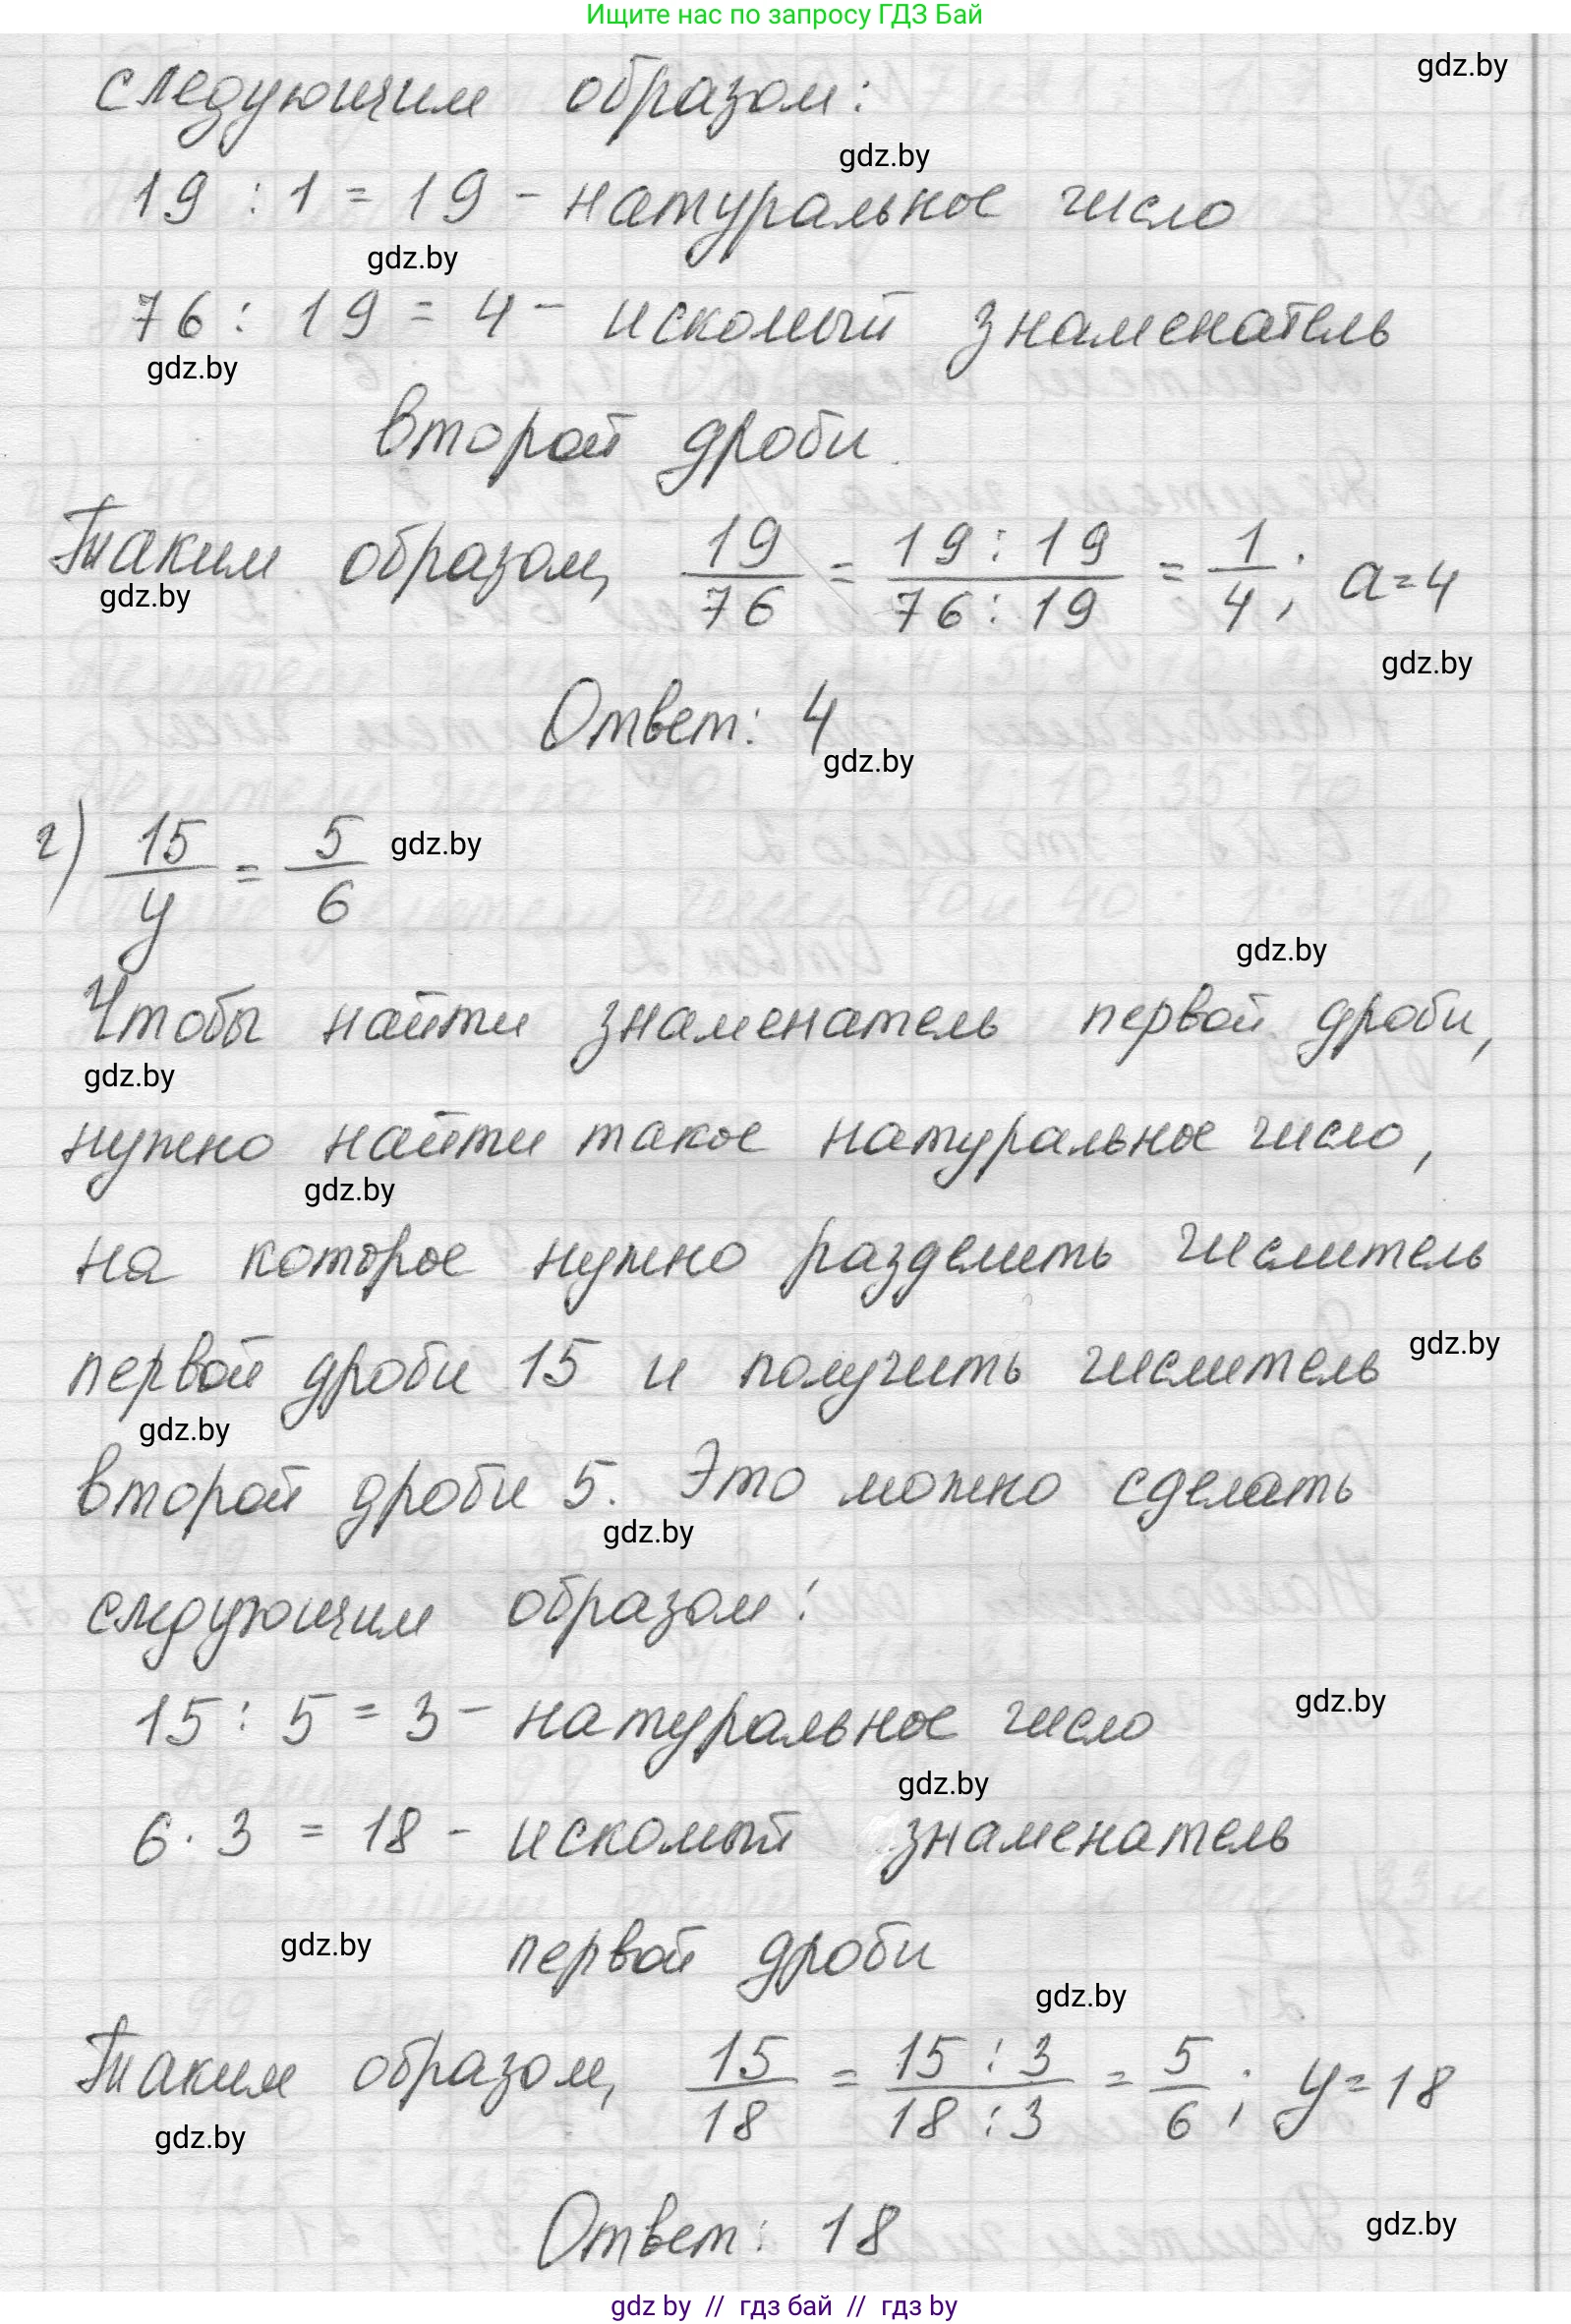 Ищите нас по запросу ГДЗ Бай
gdz.by
следующим образом:
gdz.by
19 : 1 = 19 - натуральное число
gdz.by
76 : 19 = 4 - искомый знаменатель
gdz.by
второй дроби.
Таким образом, 19/76 = 19 : 19/76 : 19 = 1/4; a = 4
gdz.by
gdz.by
Ответ: 4
gdz.by
г) 15/y = 5/6
gdz.by
gdz.by
Чтобы найти знаменатель первой дроби,
gdz.by
нужно найти такое натуральное число,
gdz.by
на которое нужно разделить числитель
первой дроби 15 и получить числитель
gdz.by
gdz.by
второй дроби 5. Это можно сделать
gdz.by
следующим образом:
15 : 5 = 3 - натуральное число
gdz.by
gdz.by
6 · 3 = 18 - искомый знаменатель
gdz.by
первой дроби
gdz.by
Таким образом, 15/18 = 15 : 3/18 : 3 = 5/6; y = 18
gdz.by
Ответ: 18
gdz.by
gdz by // гдз бай // гдз by